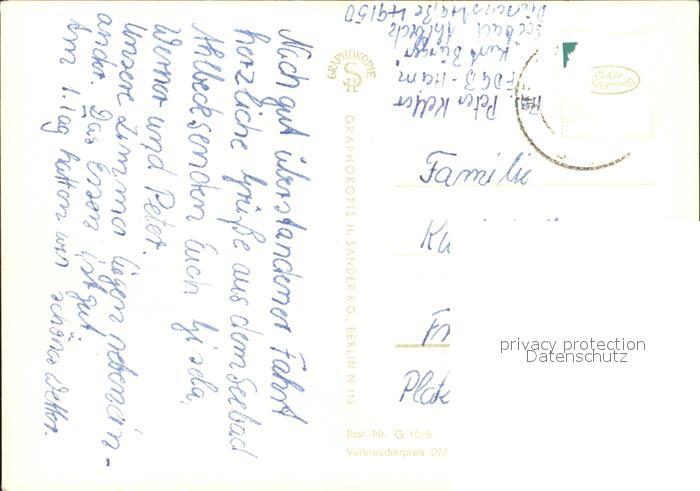 Nach gut überstandener Fahrt
herzliche Grüße aus dem Seebad
Ahlbeck senden Euch Gisela,
Werner und Peter.
Unsere Zimmer liegen nebenein-
ander. Das Essen ist gut.
Am 1. Tag hatten wir schönes Wetter.
GRAPHOKOPIE
GRAPHOKOPIE H. SANDER KG., BERLIN N 113
Peter Keller
FDGB-Heim
Kurt Bürger
Seebad Ahlbeck
Dünenstraße 47
Echte
Familie
Ku
Fr
privacy protection
Datenschutz
Best.-Nr. G 1005
Verbraucherpreis DM